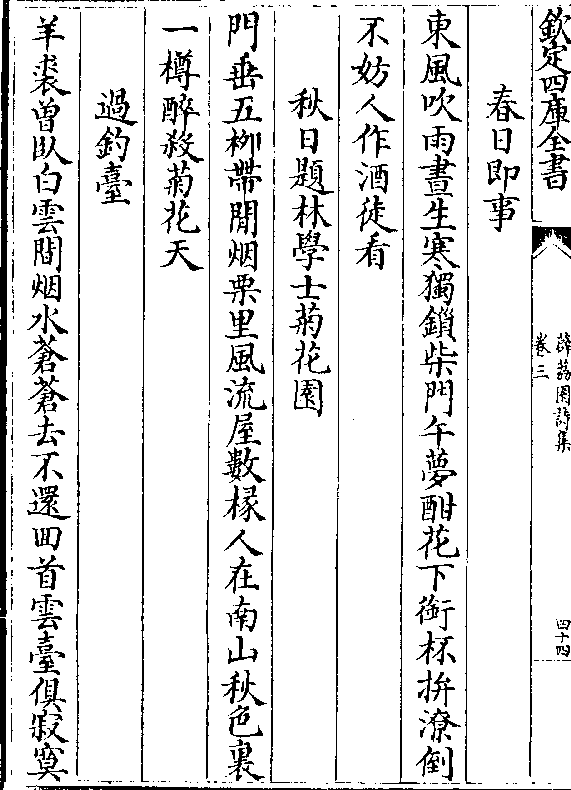 欽定四庫全書
薜荔園詩集
卷三
四十四
春日即事
東風吹雨晝生寒獨鎖柴門午夢酣花下銜杯拚潦倒
不妨人作酒徒看
秋日題林學士菊花園
門垂五栁帶閒烟栗里風流屋數椽人在南山秋色裏
一樽醉殺菊花天
過釣臺
羊裘曽臥白雲間烟水蒼蒼去不還回首雲臺俱寂寞